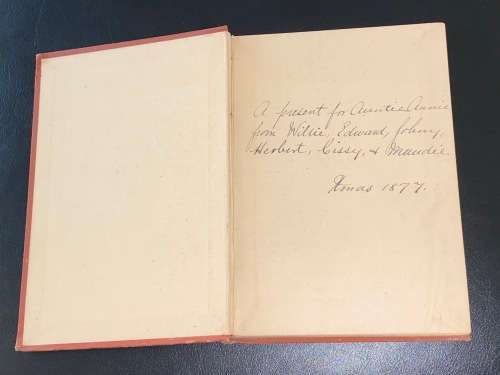 A present for Auntie Annie
from Willie, Edward, Johny,
Herbert, Cissy, & Maudie.
Xmas 1877.